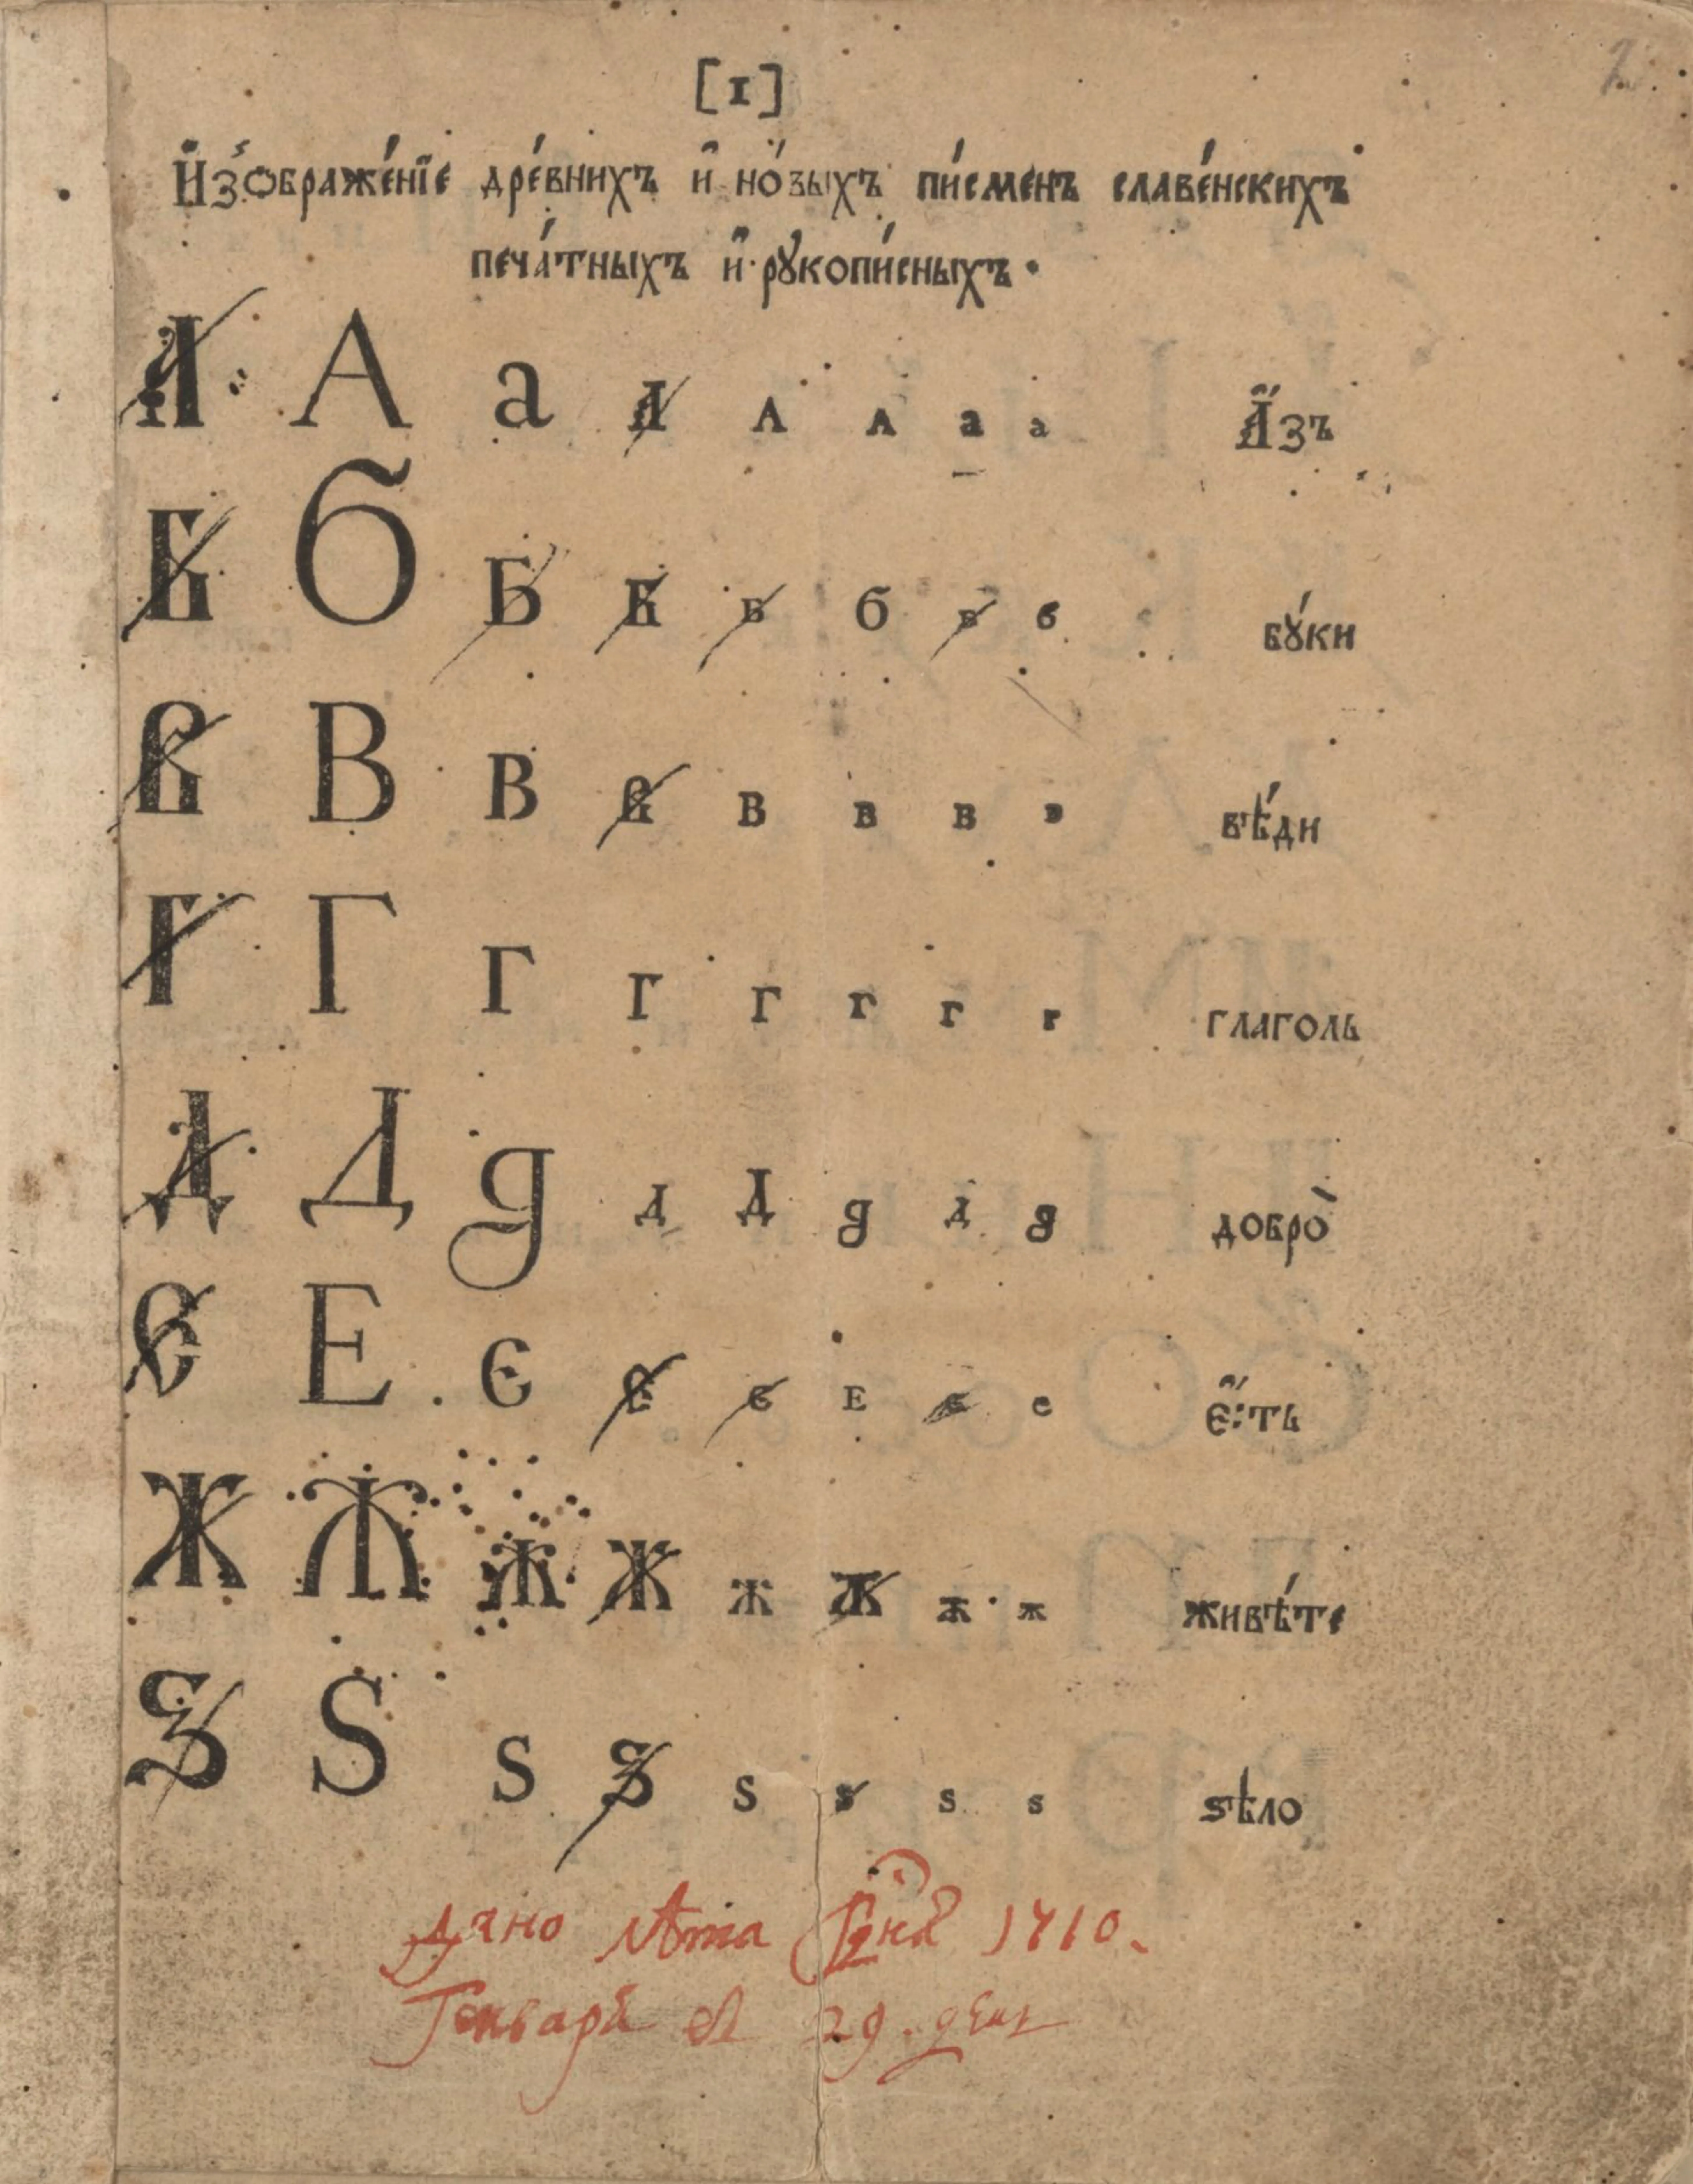 [1]
И҆зѡбраже́нїе дре́внихъ и҆ но́выхъ пи́сменъ славе́нскихъ
печа́тныхъ и҆ рꙋкопи́сныхъ.
А А а А А А а а А҆́зъ
Б Б Б Б Б б б б бꙋ́ки
В В в В в в в в вѣ́ди
Г Г г г г г г г глаголь
Д Д д д Д д д д добро̀
Є Е є Є є Е є е є҆́сть
Ж Ж ж Ж ж ж ж ж живѣ́те
Ѕ Ѕ ѕ Ѕ ѕ ѕ ѕ ѕ ѕѣло
Дано лѣта Гднѧ 1710.
Генваря въ 29. день
2